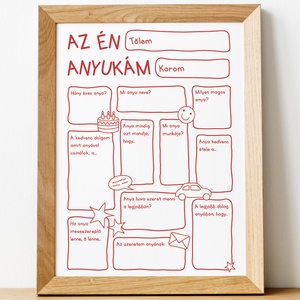 AZ ÉN
Tőlem
ANYUKÁM
Korom
Hány éves anya?
Mi anya neve?
Milyen magas
anya?
A kedvenc dolgom
amit anyával
csinálok, a...
Anya mindig
azt mondja,
hogy...
Mi anya
munkája?
Anya kedvenc
étele a...
Anya hova szeret menni
a legjobban?
Ha anya
meseszereplő
lenne, ő lenne,
Az üzenetem anyának:
A legjobb dolog
anyában, hogy...